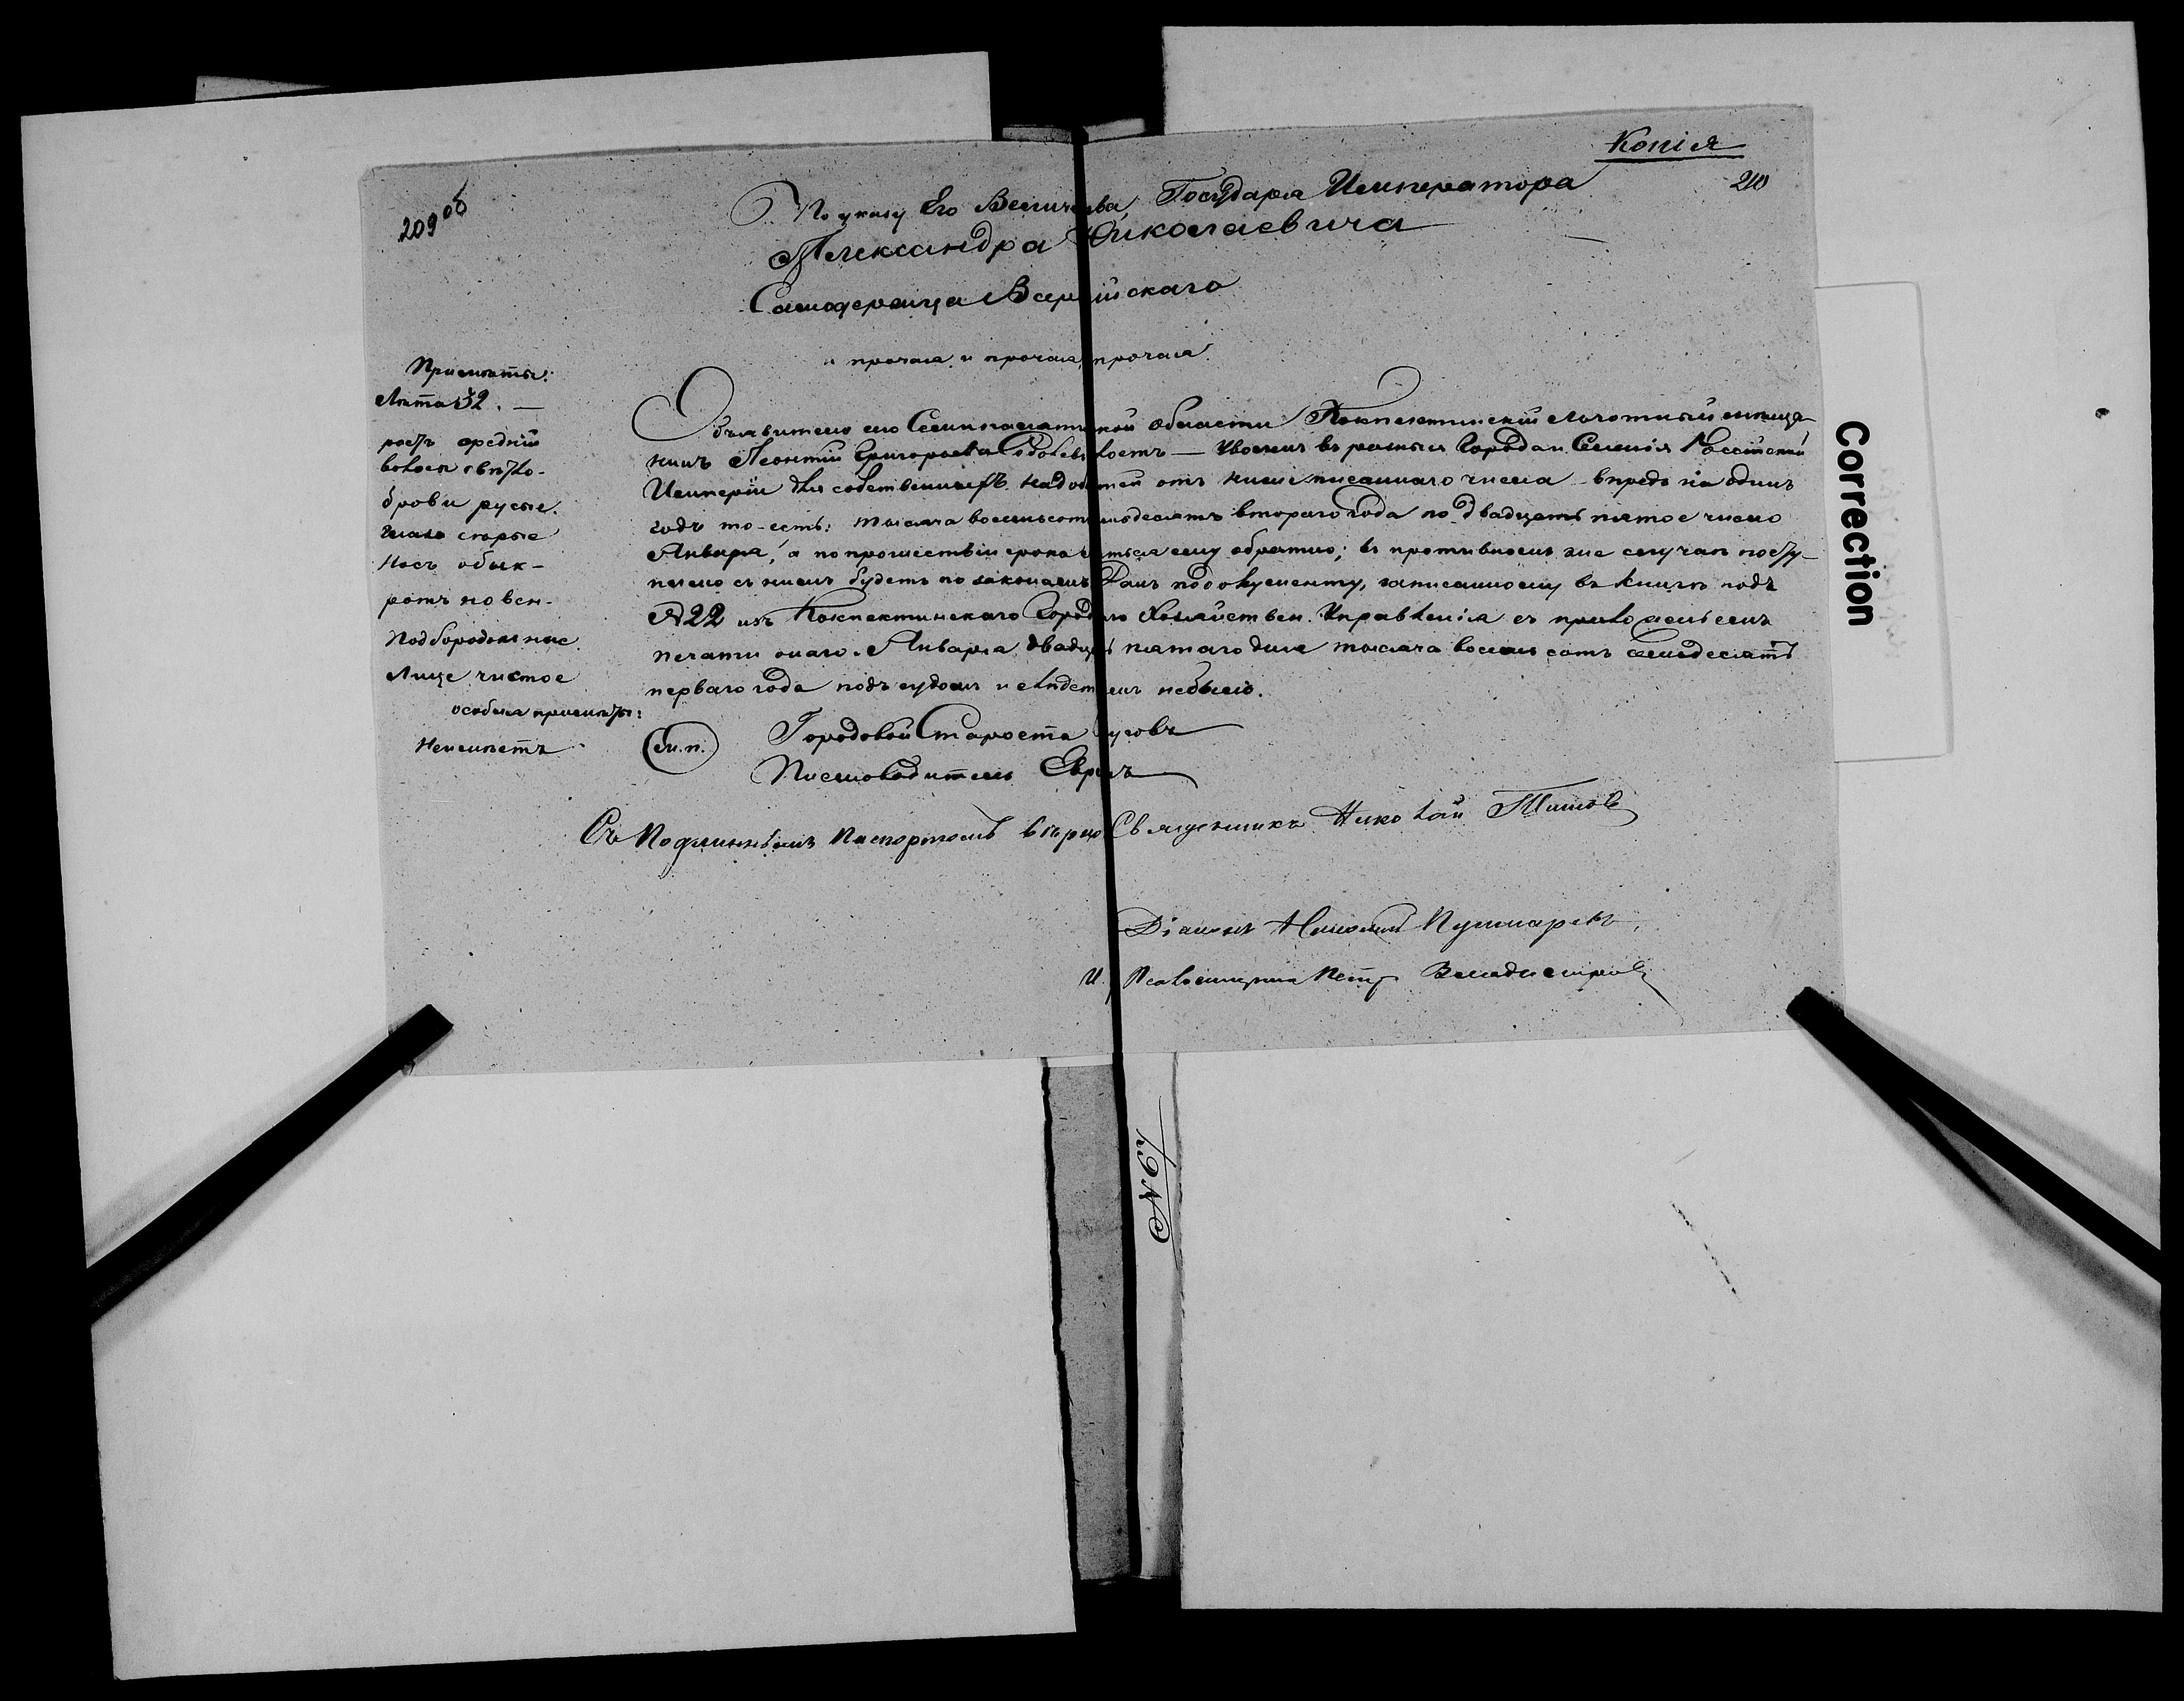 Копія
209 об
210
По указу Его Величества, Государя Императора
Александра Николаевича
Самодержца Всер ійскаго
и прочая и прочая прочая.
Примѣты:
Лѣта 32. —
ростъ средній
волоса свѣтло-
брови русые.
глаза сѣрые
Носъ обык-
ротъ новен-
Подбородокъ ные.
Лице чистое
особыя примѣты:
Неимѣетъ
Объявителю сего Семипалати ской области Кокпектинскій льготный мѣща-
нинъ Леонтій Григорьевъ уволенъ въ разныя Города и Селенія Россійской
Имперіи для собственныхъ надоб тей отъ ниже писаннаго числа впредъ на одинъ
годъ то-есть: тысяча восемьсот мьдесятъ втораго года по двадцать пятое число
Января, а по прошествіи срока ться ему обратно; въ противномъ же случаѣ посту-
плено съ нимъ будетъ по законамъ Данъ по документу, записанному въ книгѣ подъ
№ 22 изъ Кокпектинскаго Город го Хозяйствен. Управленія съ приложеніемъ
печати онаго. Января двадца пятаго дня тысяча восемь сотъ семьдесятъ
перваго года подъ судомъ и слѣдст мъ небыло.
(М.п.) Городовой Староста усовъ
Письмоводитель
Съ Подлиннымъ Паспортомъ вѣрно Священникъ Николай Титовъ
Діаконъ Пушкаревъ
И. Псаломщика Петръ
№ 97.
Correction